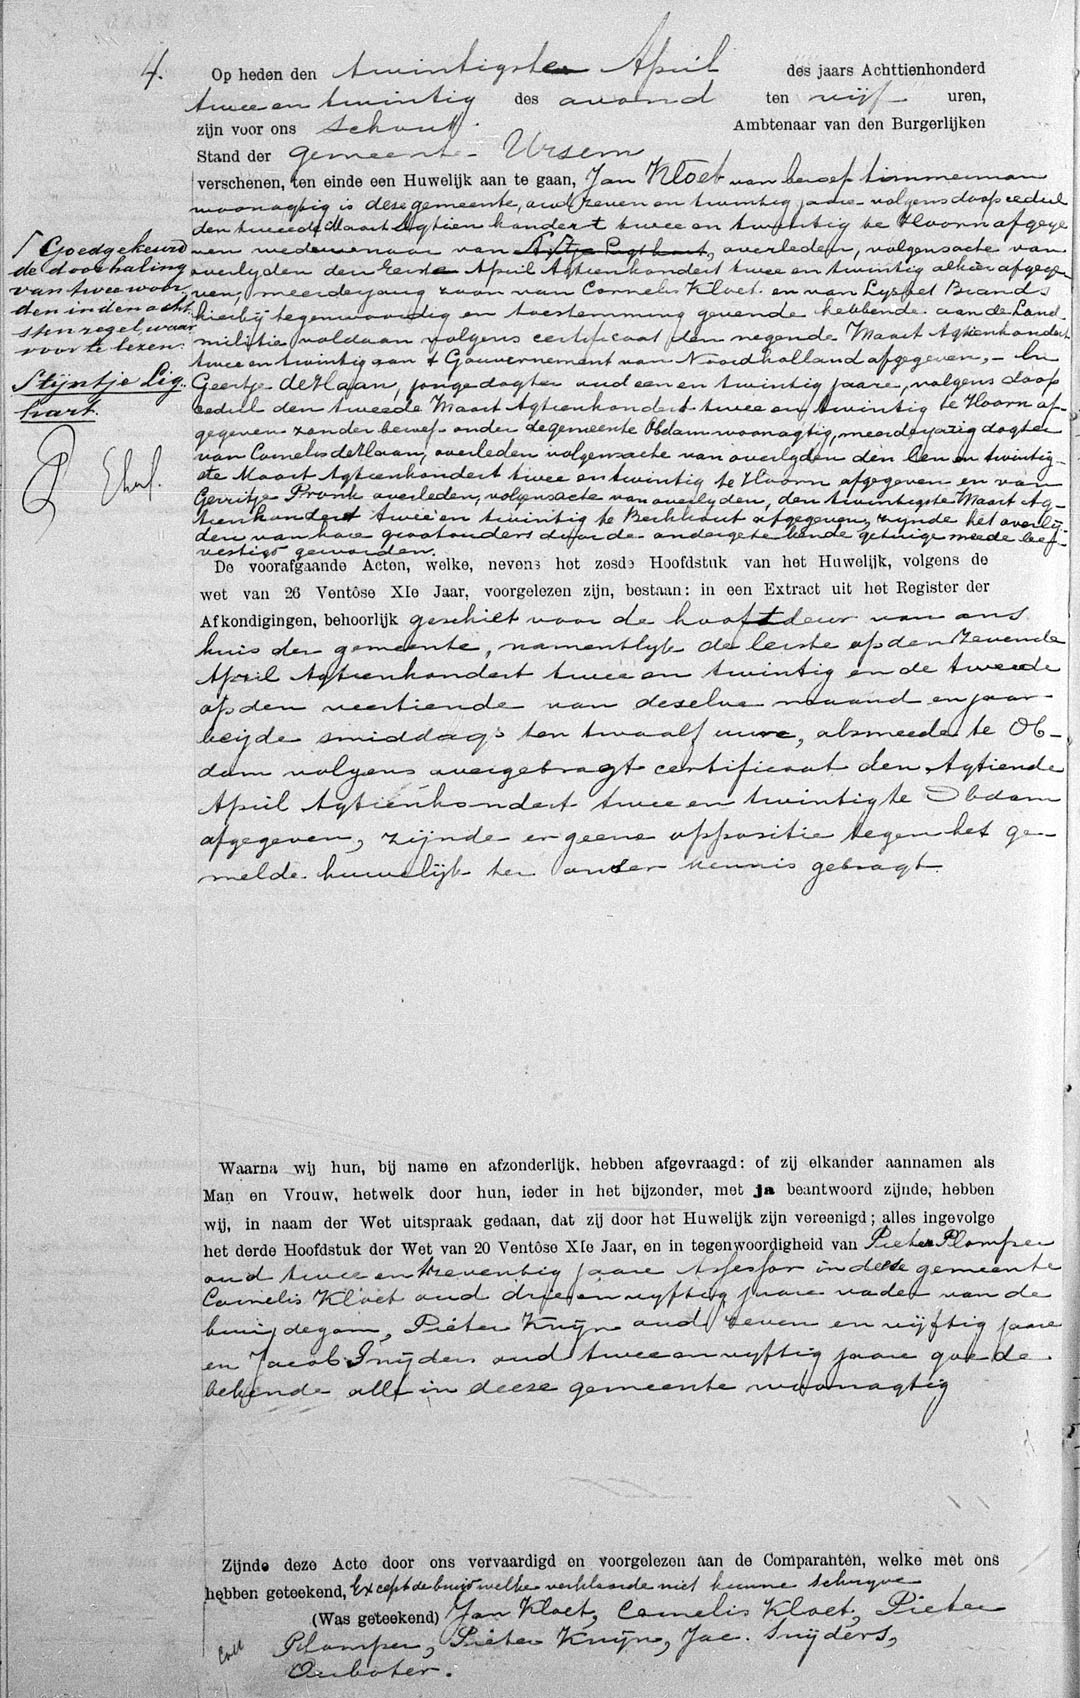 4.
Op heden den twintigsten April des jaars Achttienhonderd
twee en twintig des avond ten vijf uren,
zijn voor ons Schout Ambtenaar van den Burgerlijken
Stand der gemeente Ursem
verschenen, ten einde een Huwelijk aan te gaan, Jan Kloet van beroep timmerman
woonagtig is dese gemeente, oud zeven en twintig jaare volgens doopcedul
den tweede Maart Agtien hondert twee en twintig te Hoorn afgege
ven weduwenaar van overleden, volgens acte van
overlyden den Eerste April Agtienhondert twee en twintig alhier afgege
ven, meerderjarig zoon van Cornelis Kloet en van Lysbet Brands
hierbij tegenwoordig en toestemming gevende hebbende aan de Land
militie voldaan volgens certificaat den negende Maart Agtienhondert
twee en twintig van t Gouvernement van Noordholland afgegeven, – En
Geertje deHaan, jongedogter oud een en twintig jaare, volgens doop
cedul den tweede Maart Agtienhondert twee en twintig te Hoorn af-
gegeven zonder beroep onder de gemeente Obdam woonagtig, meerderjarig dogter
van Cornelis deHaan, overleden volgens acte van overlyden den Een en twintig-
ste Maart Agtienhondert twee en twintig te Hoorn afgegeven en van
Gerritje Pronk overleden, volgens acte van overlyden, den twintigste Maart Ag-
tienhondert twee en twintig te Berkhout afgegeven, zynde het overlij-
den van hare grootouders door de ondergetekende getuige mede beef-
vestigt geworden.
√ Goedgekeurd
de doorhaling
van twee woor
den in den acht
sten regel, waar
voor te lezen:
Stijntje Lig-
hart.
De voorafgaande Acten, welke, nevens het zesde Hoofdstuk van het Huwelijk, volgens de
wet van 26 Ventôse XIe Jaar, voorgelezen zijn, bestaan: in een Extract uit het Register der
Afkondigingen, behoorlijk geschiet voor de hooftdeur van ons
huis der gemeente, namentlyk de Eerste op den Zevende
April Agtienhondert twee en twintig en de tweede
op den veertiende van deselve maand en jaar
beijde smiddag's ten twaalf uure, alsmede te Ob-
dam volgens overgebragt certificaat den Agtiende
April Agtienhondert twee en twintig te Obdam
afgegeven, zijnde er geene oppositie tegen het ge-
melde huwelijk ter onser kennis gebragt.
Waarna wij hun, bij name en afzonderlijk, hebben afgevraagd: of zij elkander aannamen als
Man en Vrouw, hetwelk door hun, ieder in het bijzonder, met ja beantwoord zijnde, hebben
wij, in naam der Wet uitspraak gedaan, dat zij door het Huwelijk zijn vereenigd; alles ingevolge
het derde Hoofdstuk der Wet van 20 Ventôse XIe Jaar, en in tegenwoordigheid van Pieter Plomper
oud twee en zeventig jaare Assessor in deese gemeente
Cornelis Kloet oud drie en vyftig jaare vader van de
bruijdegom, Pieter Kruijn oud zeven en vijftig jaare
en Jacob Snijders oud twee en vyftig jaare goede
bekende alle in deese gemeente woonagtig
Zijnde deze Acte door ons vervaardigd en voorgelezen aan de Comparanten, welke met ons
hebben geteekend, Except de bruijd welke verklaarde niet kunne schryve
(Was geteekend) Jan Kloet, Cornelis Kloet, Pieter
Plomper, Pieter Kruijn, Jac. Snijders,
Ouboter.